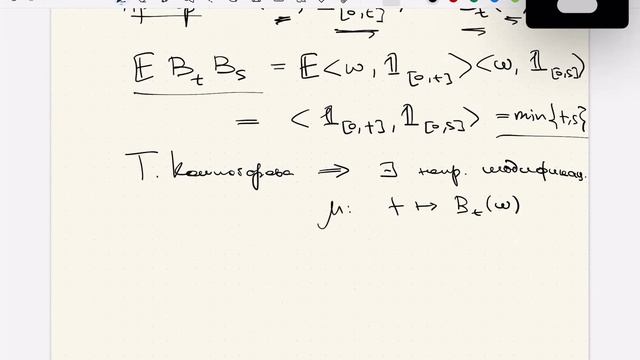 𝔼 B_t B_s = 𝔼 <ω, 𝟙_[0,t]> <ω, 𝟙_[0,s]>
= <𝟙_[0,t], 𝟙_[0,s]> = min{t,s}
Т. Колмогорова ⇒ ∃ непр. модификац.
μ: t ↦ B_t(ω)